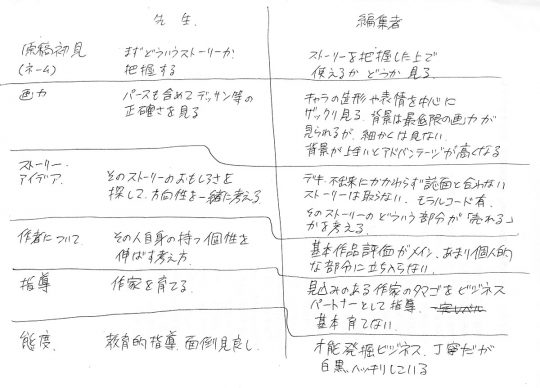 先生. 編集者
原稿初見 まずどういうストーリーか ストーリーを把握した上で
(ネーム) 把握する 使えるか どうか 見る.
画力 パースも含めてデッサン等の キャラの造形や表情を中心に
正確さを見る ザックリ見る. 背景は最低限の画力が
見られるが、細かくは見ない
背景が上手いとアドバンテージが高くなる
ストーリー・ そのストーリーのおもしろさを デキ、不出来にかかわらず誌面と合わない
アイデア. 探して、方向性を一緒に考える ストーリーは取らない. モラルコード有.
そのストーリーの どういう部分が「売れる」
かを考える.
作者について その人自身の持つ個性を 基本作品評価がメイン、あまり個人的
伸ばす考え方. な部分に立ち入らない.
指導 作家を育てる. 見込みのある作家のタマゴをビジネス
パートナーとして指導.
基本 育てない.
態度. 教育的指導、面倒見良し. 才能発掘ビジネス、丁寧だが
白黒ハッキリしている